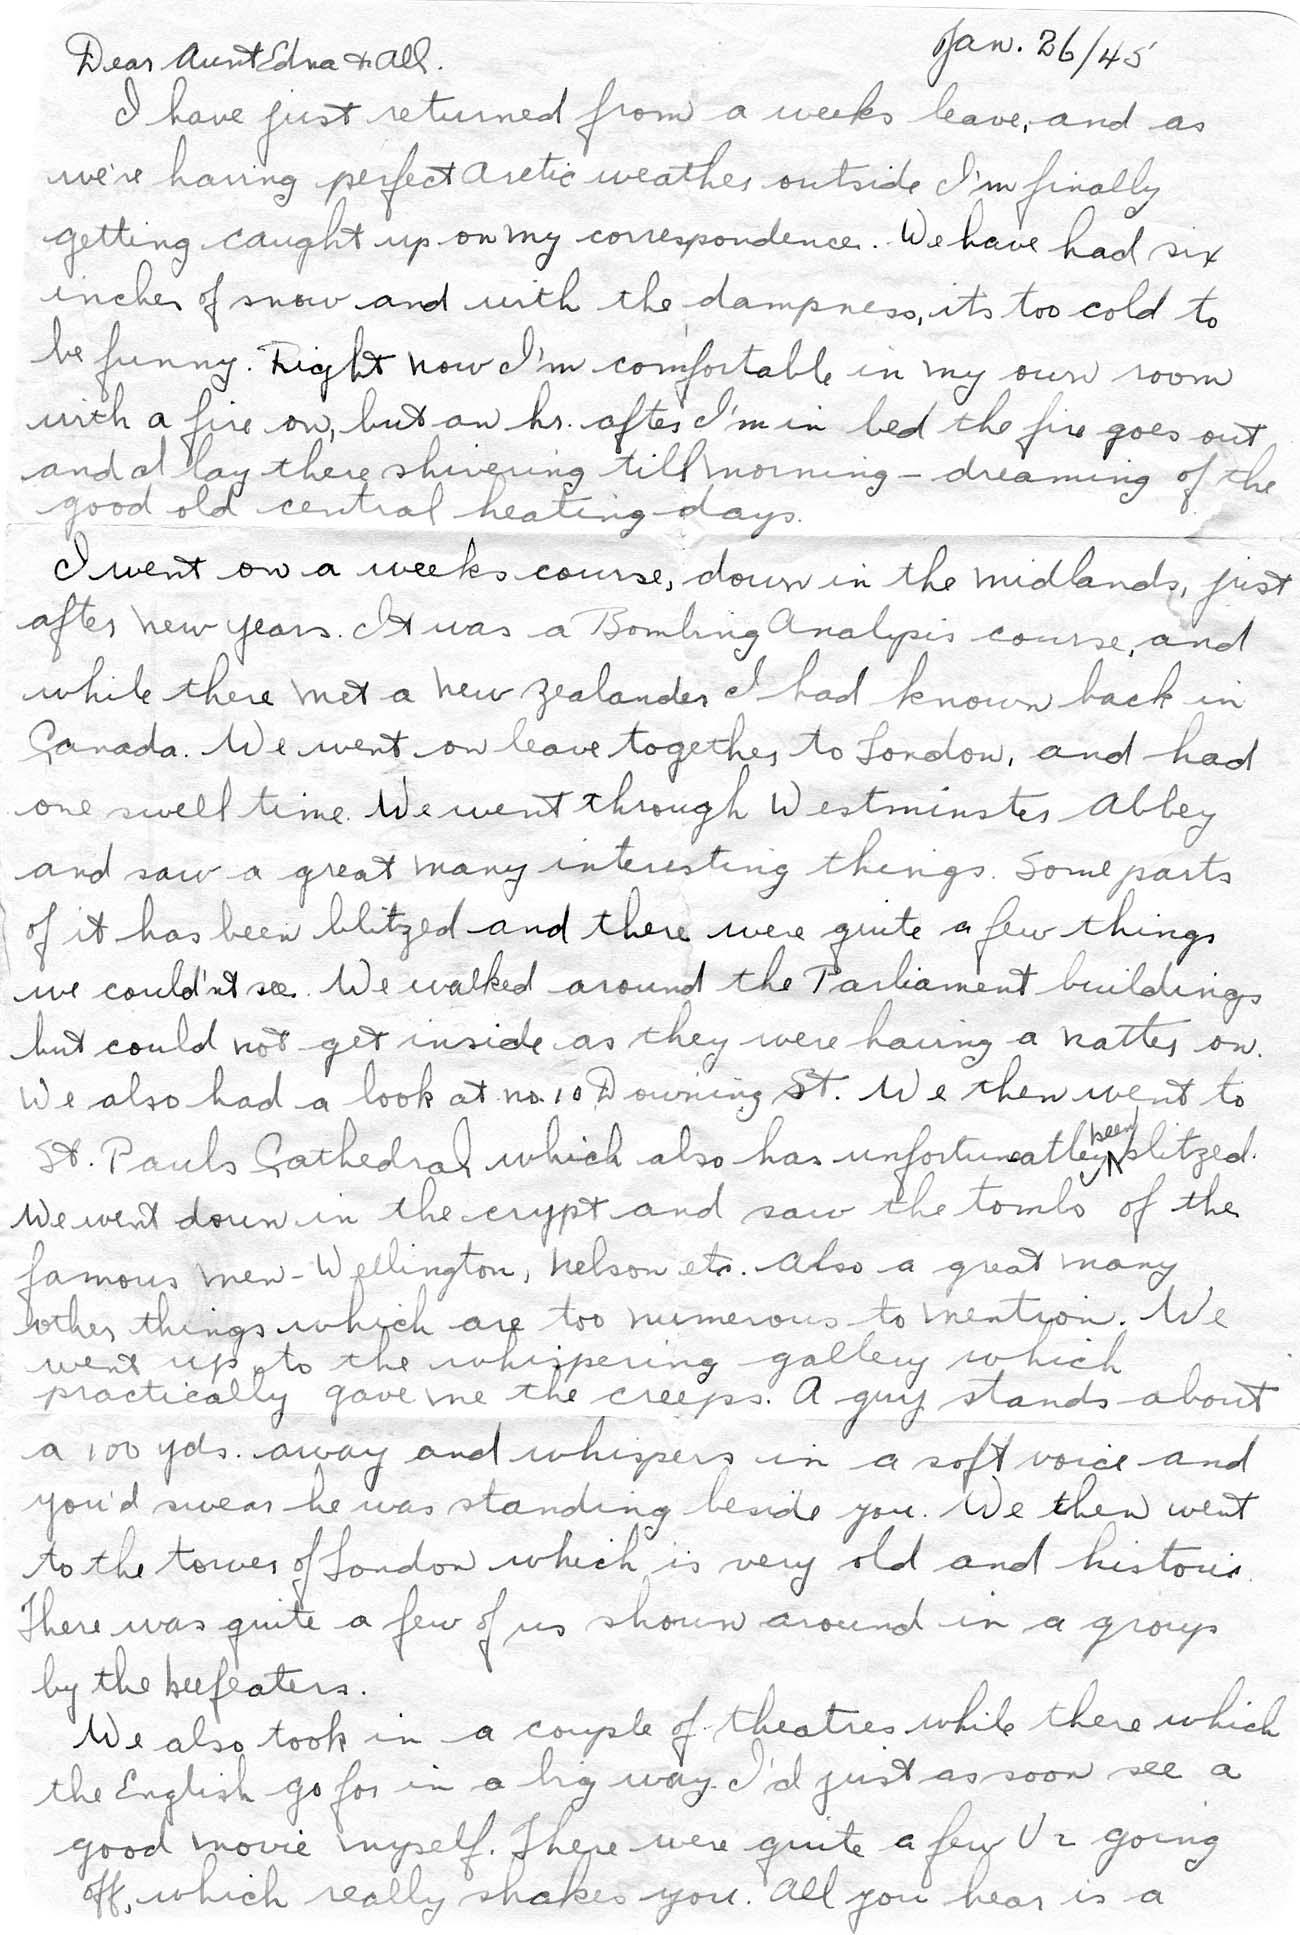 Jan. 26/45
Dear Aunt Edna & All.
I have just returned from a weeks leave, and as
we're having perfect Arctic weather outside I'm finally
getting caught up on my correspondence. We have had six
inches of snow and with the dampness, its too cold to
be funny. Right now I'm comfortable in my own room
with a fire on, but an hr. after I'm in bed the fire goes out
and I lay there shivering till morning - dreaming of the
good old central heating days.
I went on a weeks course, down in the midlands, just
after new years. It was a Bombing Analysis course, and
while there met a New Zealander I had known back in
Canada. We went on leave together to London, and had
one swell time. We went through Westminster Abbey
and saw a great many interesting things. Some parts
of it has been blitzed and there were quite a few things
we could'nt see. We walked around the Parliament buildings
but could not get inside as they were having a natter on.
We also had a look at no. 10 Downing St. We then went to
St. Pauls Cathedral which also has unfortunatley been blitzed.
We went down in the crypt and saw the tombs of the
famous men - Wellington, Nelson etc. Also a great many
other things which are too numerous to mention. We
went up to the whispering gallery which
practically gave me the creeps. A guy stands about
a 100 yds. away and whispers in a soft voice and
you'd swear he was standing beside you. We then went
to the tower of London which is very old and historic.
There was quite a few of us shown around in a group
by the beefeaters.
We also took in a couple of theatres while there which
the English go for in a big way. I'd just as soon see a
good movie myself. There were quite a few V2 going
off, which really shakes you. All you hear is a